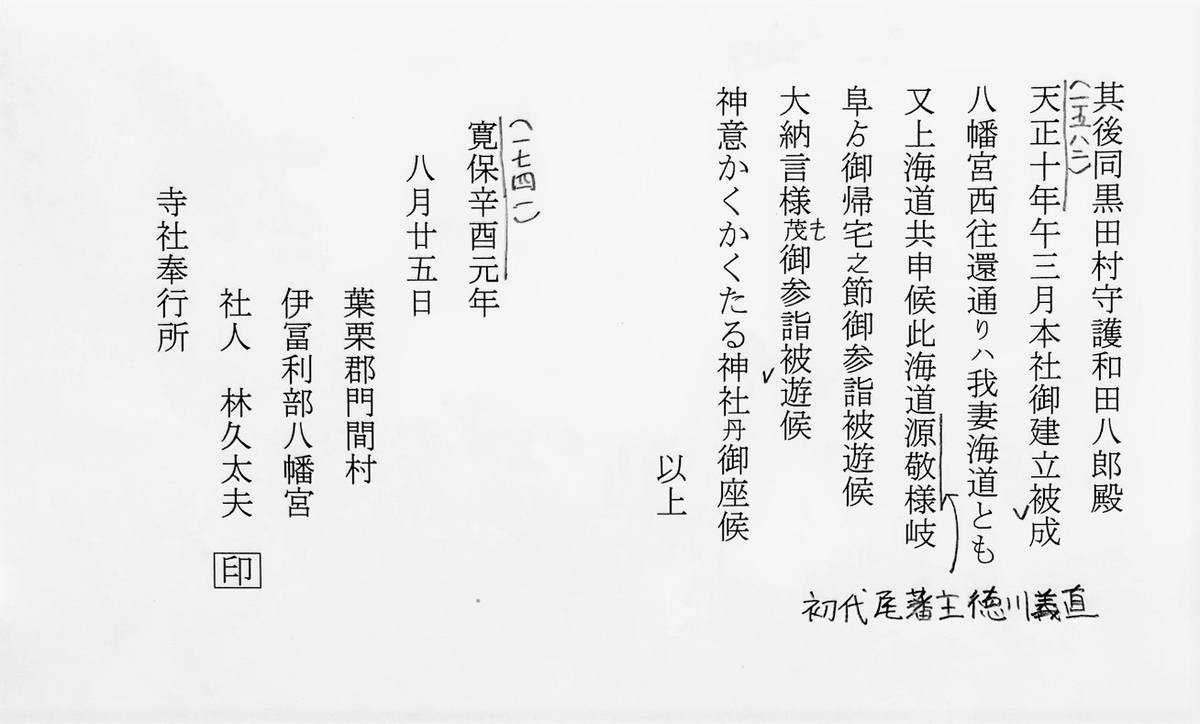 其後同黒田村守護和田八郎殿
(一五八二)
天正十年午三月本社御建立被成
八幡宮西往還通りハ我妻海道とも
又上海道共申候此海道源敬様岐
初代尾藩主徳川義直
阜ゟ御帰宅之節御参詣被遊候
大納言様茂御参詣被遊候
も
神意かくかくたる神社丹御座候
以上
(一七四一)
寛保辛酉元年
八月廿五日
葉栗郡門間村
伊冨利部八幡宮
社人 林久太夫 印
寺社奉行所